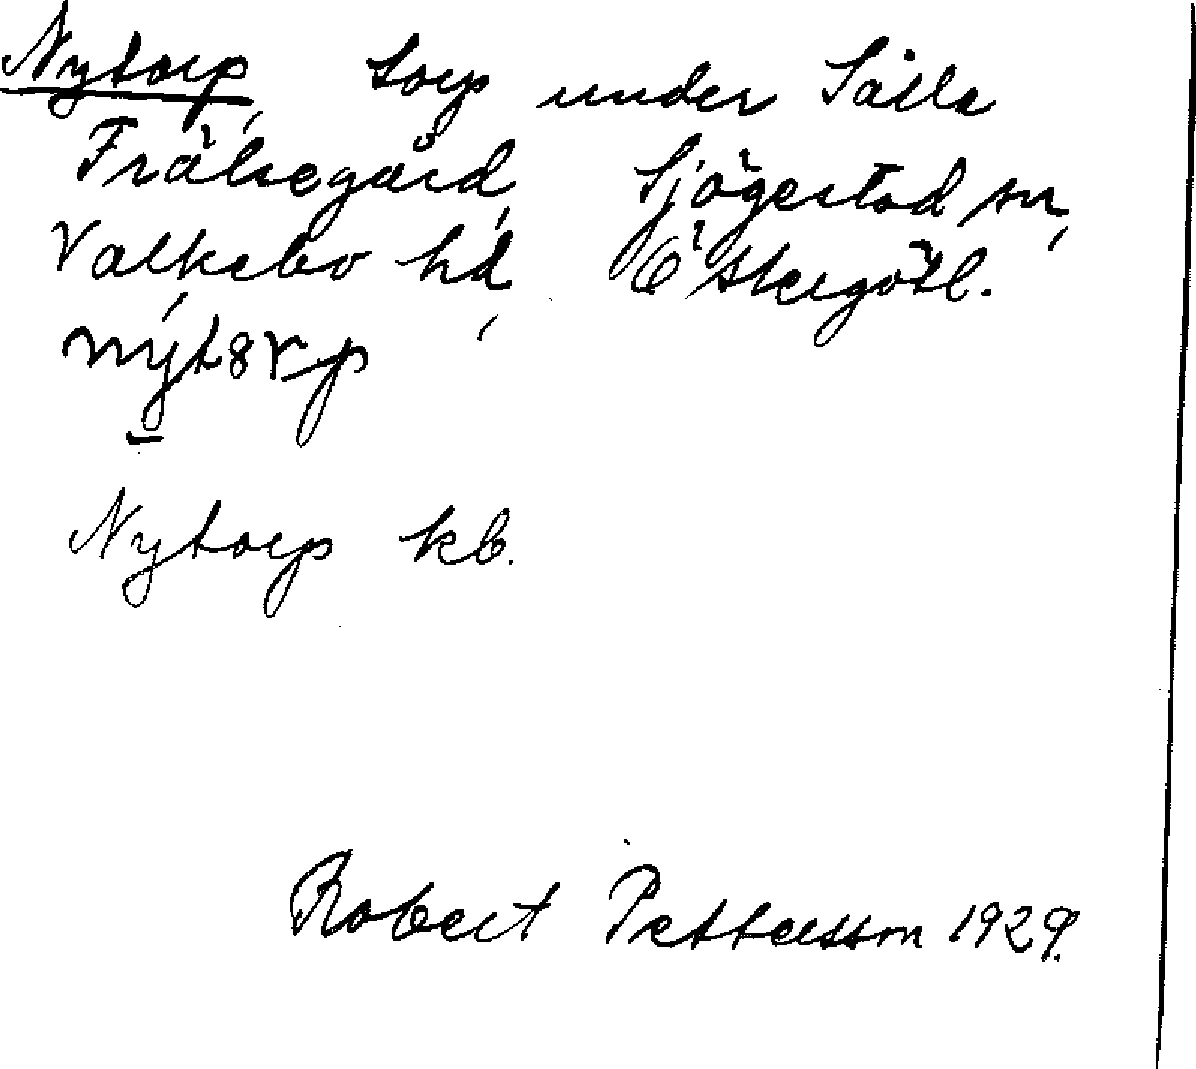 Nytorp, torp under Sålla
Frälsegård, Sjögestad sn,
Valkebo hd, Östergötl.
Nytorp kb.
Robert Pettersson 1929.